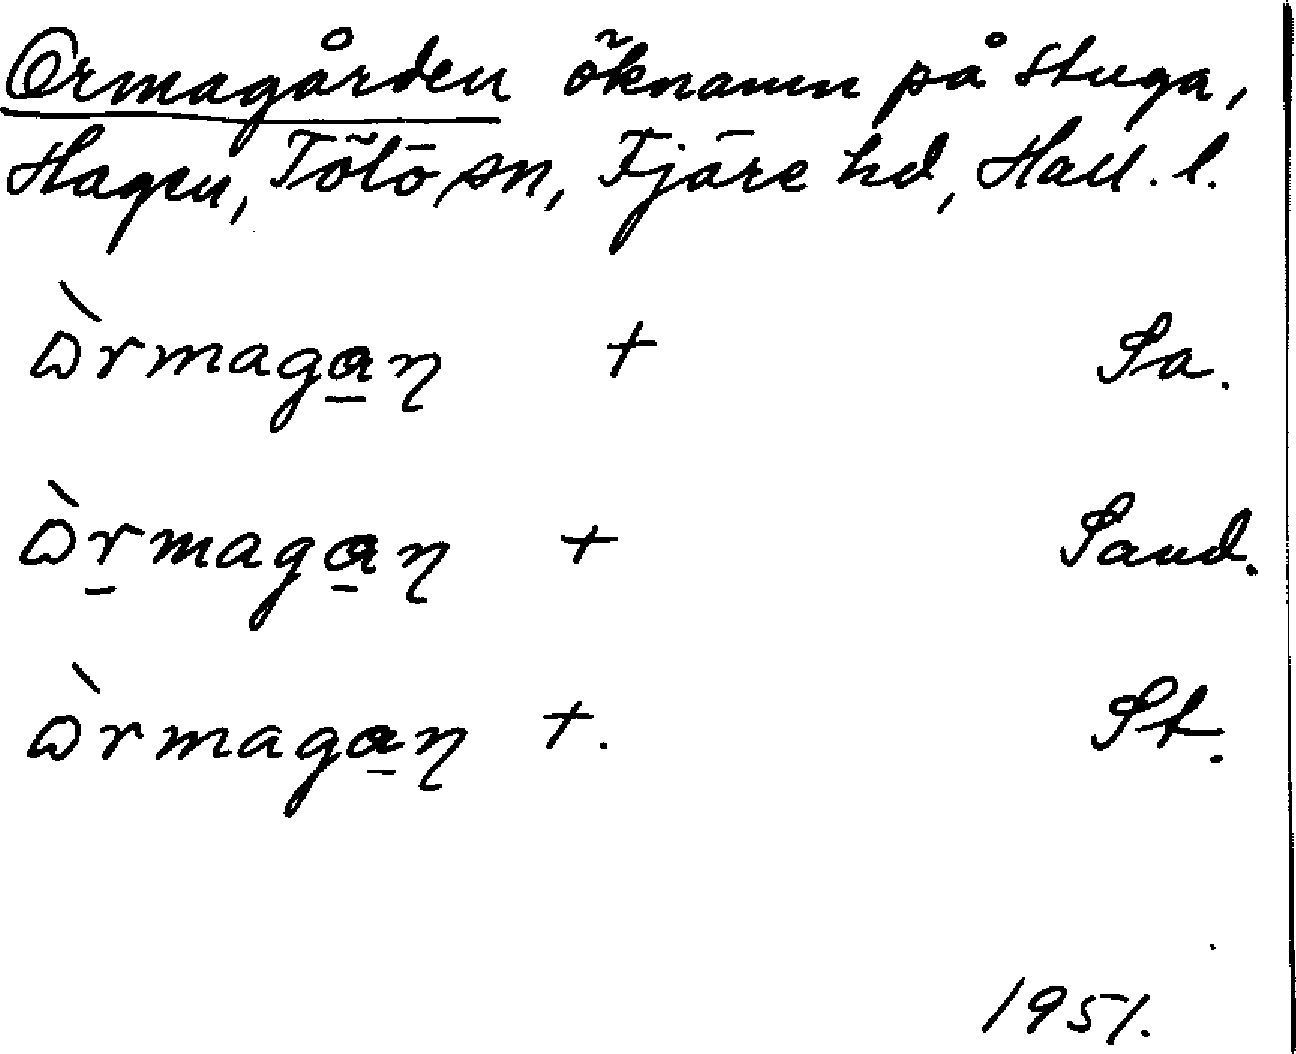 Ormagården öknamn på stuga,
Hagen, Tölö sn, Fjäre hd, Hall. l.
ὼrmaga̲ɳ + Sa.
ὼr̲maga̲ɳ + Sand.
ὼrmaga̲ɳ +. St.
1951.